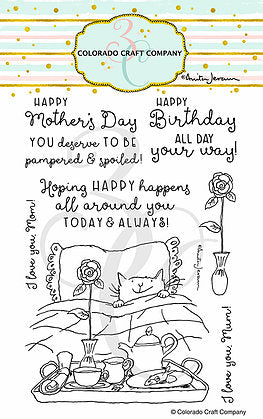 3C
COLORADO CRAFT COMPANY
Anita Jeram
HAPPY
Mother's Day
YOU deserve TO BE
pampered & spoiled!
HAPPY
Birthday
ALL DAY
your way!
Hoping HAPPY happens
all around you
TODAY & ALWAYS!
I love you, Mom!
Anita Jeram
I love you, Mum!
© Colorado Craft Company